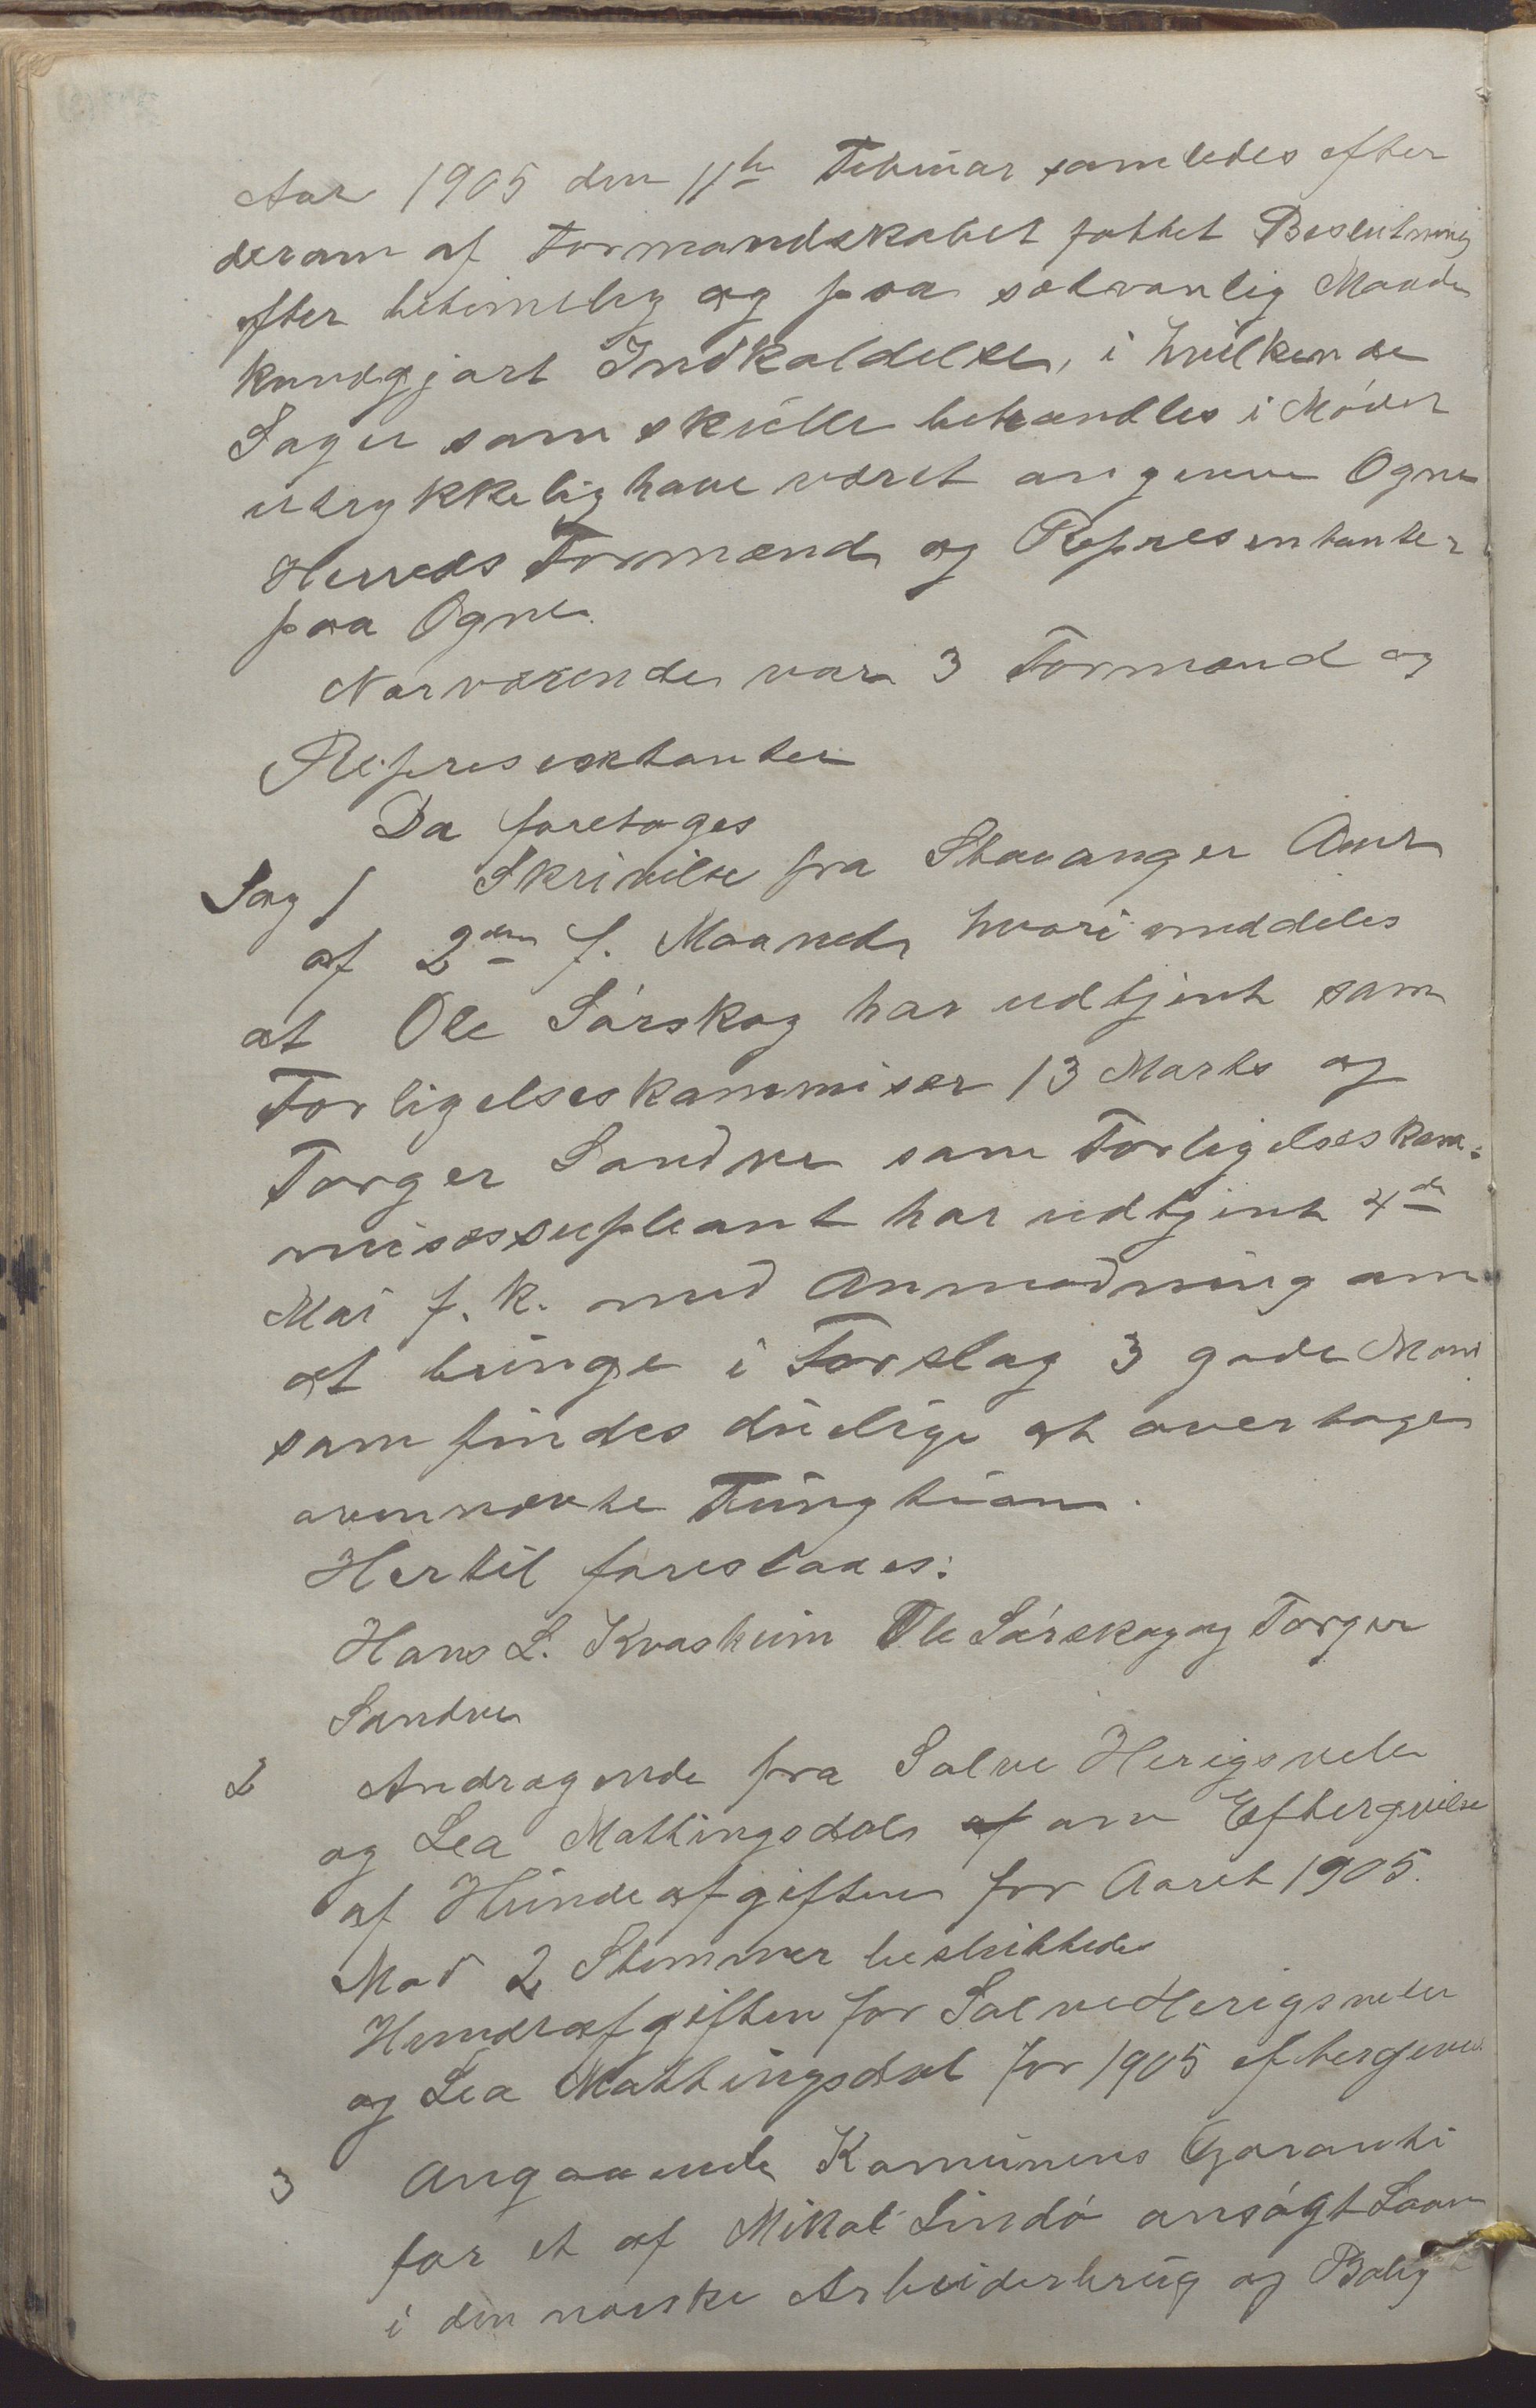 Aar 1905 den 11te Februar samledes efter
derom af Formandskabet fattet Beslutning
efter betimelig og paa sedvanlig Maade
kundgjort Indkaldelse, i hvilken de
Sager som skulle behandles i Mødet
udtrykkelig have været angivne Ogne
Herreds Formænd og Representanter
paa Ogne.
Nærværende var 3 Formænd og
Representanter
Da foretoges
Sag 1 Skrivelse fra Stavanger Amt
af 2den f. Maaned hvori meddeles
at Ole Sørskog har udtjent som
Forligelseskommisær 13 Marts og
Torger Sandve som Forligelseskom-
misæssupleant har udtjent 4de
Mai f. k. med Anmodning om
at bringe i Forslag 3 gode Mænd
som findes duelige at overtage
ovennævnte Fungtion.
Hertil foreslaaes:
Hans L. Kvasheim Ole Sørskog og Torger
Sandve
2 Andragende fra Salve Herigsvele
og Lea Mattingsdal af om Eftergivelse
af Hundeafgiften for Aaret 1905.
Mod 2 Stemmer besluttedes
Hundeafgiften for Salve Herigsvele
og Lea Mattingsdal for 1905 eftergivet.
3 Angaaende Komunens Garanti
for et af Mikal Lindø ansøgt Laan
i den norske Arbeiderbrug og Bolig